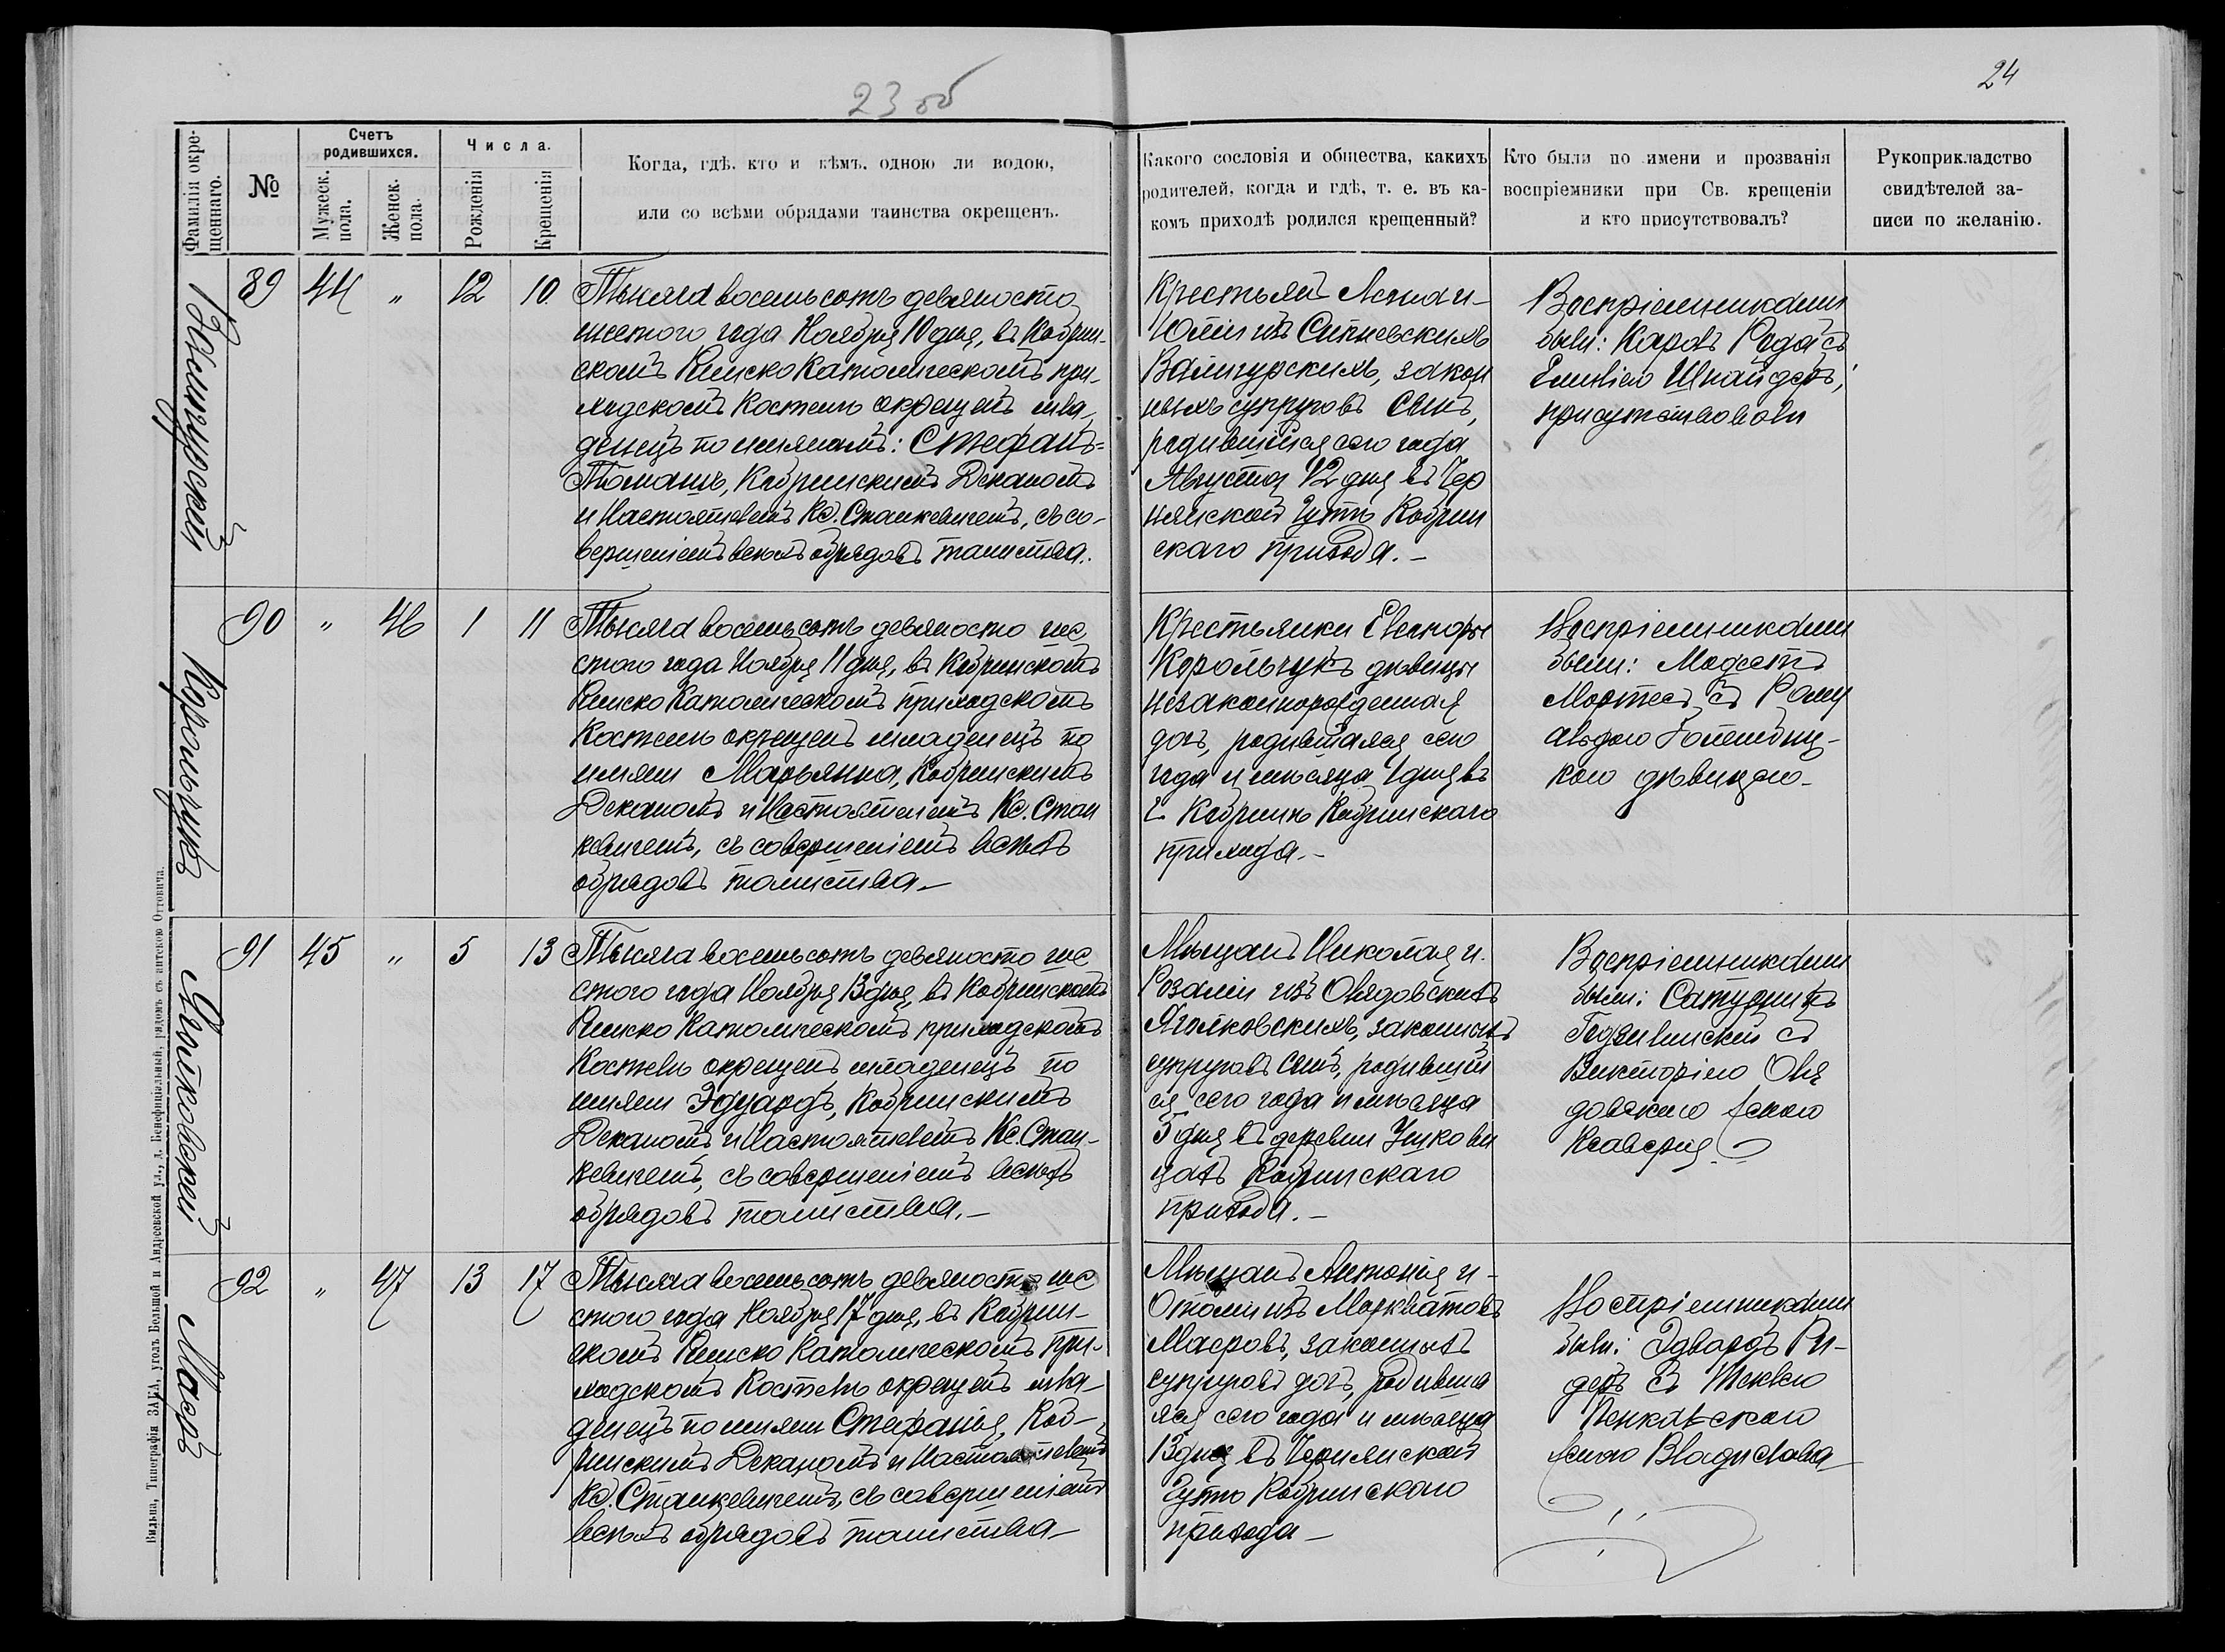 23 об
24
Фамилія окре-
щеннаго.
№
Счетъ
родившихся.
Мужеск.
пола.
Женск.
пола.
Числа.
Рожденія
Крещенія
Когда, гдѣ, кто и кѣмъ, одною ли водою,
или со всѣми обрядами таинства окрещенъ.
Какого сословія и общества, какихъ
родителей, когда и гдѣ, т. е. въ ка-
комъ приходѣ родился крещенный?
Кто были по имени и прозванія
воспріемники при Св. крещеніи
и кто присутствовалъ?
Рукоприкладство
свидѣтелей за-
писи по желанію.
89
44
"
12
10
Тысяча восемьсотъ девяносто
шестого года Ноября 10 дня, въ Кобрин-
скомъ Римско Католическомъ при-
ходскомъ Костелѣ окрещенъ мла-
денецъ по именамъ: Стефанъ=
Томашъ, Кобринскимъ Деканомъ
и Настоятелемъ Кс. Станкевичемъ, съ со-
вершеніемъ всѣхъ обрядовъ таинства.
Крестьянъ и
Юліи изъ
законныхъ супруговъ сынъ,
родившійся сего года
Августа 12 дня въ Чер
нянской Гутѣ Кобрин
скаго прихода.-
Воспріемниками
были: Карлъ съ
Емиліею Шнайдеръ,
присутствовали
Корольчукъ
90
"
46
1
11
Тысяча восемьсотъ девяносто ше
стого года Ноября 11 дня, въ Кобринскомъ
Римско Католическомъ приходскомъ
Костелѣ окрещенъ младенецъ по
имени Марьянна, Кобринскимъ
Деканомъ и Настоятелемъ Кс. Стан
кевичемъ, съ совершеніемъ всѣхъ
обрядовъ таинства-
Крестьянки Елеоноры
Корольчукъ дѣвицы
незаконнорожденная
дочь, родившаяся сего
года и мѣсяца 1 дня въ
г. Кобринѣ Кобринскаго
прихода.-
Воспріемниками
были: Модестъ
съ Рому
альдою
кою дѣвицею-
Яголковскій
91
45
"
5
13
Тысяча восемьсотъ девяносто ше
стого года Ноября 13 дня, въ Кобринскомъ
Римско Католическомъ приходскомъ
Костелѣ окрещенъ младенецъ по
имени Эдуардъ, Кобринскимъ
Деканомъ и Настоятелемъ Кс. Стан-
кевичемъ, съ совершеніемъ всѣхъ
обрядовъ таинства.-
Мѣщанъ Николая и
Розаліи изъ Овядовскихъ
Яголковскихъ, законныхъ
супруговъ сынъ, родившій
ся сего года и мѣсяца
5 дня въ деревни
цахъ Кобринскаго
прихода.-
Воспріемниками
были: Сатурнинъ
съ
Викторіею Овя
довскою женою
Ксаверія.
Маеръ
92
"
47
13
17
Тысяча восемьсотъ девяносто ше
стого года Ноября 17 дня, въ Кобрин-
скомъ Римско Католическомъ при-
ходскомъ Костелѣ окрещенъ мла-
денецъ по имени Стефанія, Коб-
ринскимъ Деканомъ и Настоятелемъ
Кс. Станкевичемъ, съ совершеніемъ
всѣхъ обрядовъ таинства-
Мѣщанъ Антонія и-
изъ
Маеровъ, законныхъ
супруговъ дочь, родивша
яся сего года и мѣсяца
13 дня въ Чернянской
Гутѣ Кобринскаго
прихода-
Воспріемниками
были: Эдвардъ Ри-
деръ съ Теклею
женою Владислава-
Вильна, Типографія ЗАКА, уголъ Большой и Андреевской ул., д. Бенефиціальный, рядомъ съ аптекою Оттовича.